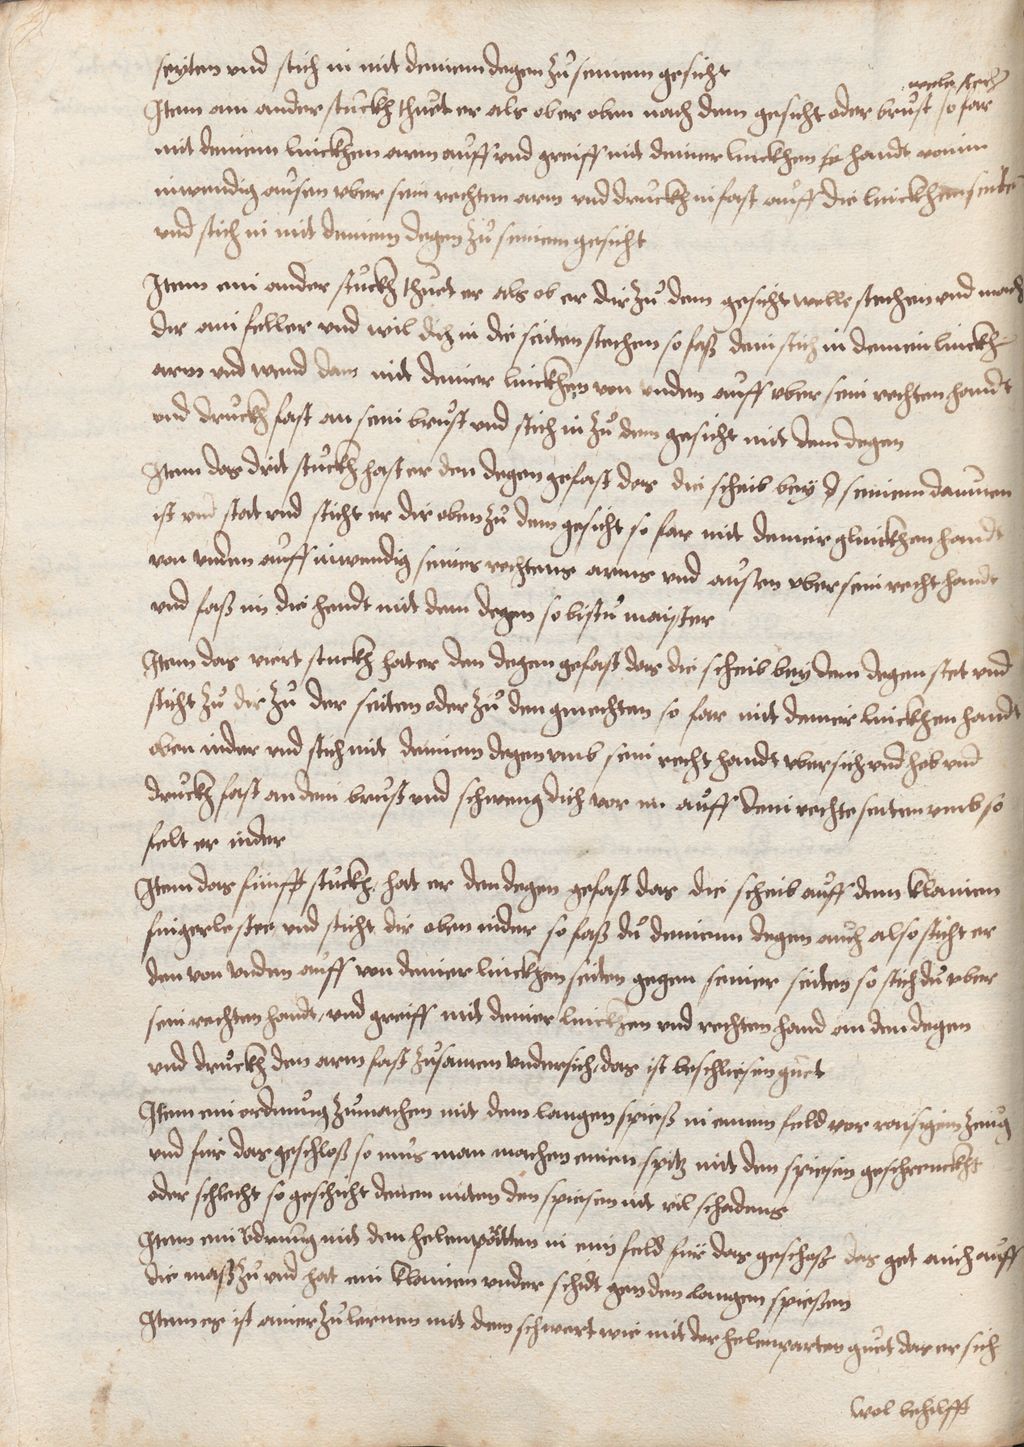 seyten vnd stich in mit deinem degen zů seinem gesicht
welle stech
Item ain ander stuckh thuet er als ob er oben nach dem gesicht oder brust so far
mit deinem linckhen arm auff vnd greiff mit deiner linckhen handt von im
inwendig ausen vber sein rechten arm vnd druckh in fast auff die linckhen seiten
vnd stich in mit deinem degen zů seinem gesicht
Item ein ander stuckh thuet er als ob er dir zů dem gesicht welle stechen vnd mach
dir ain feller vnd wil dich in die seiten stechen so faß dein stich in deinen linckh
arm vnd wend dan mit deiner linckhen von vnden auff vber sein rechten handt
vnd druckh fast an sein brust vnd stich in zů dem gesicht mit dem degen
Item das drit stuckh hast er den degen gefast das die scheib bey seinem daumen
ist vnd stat vnd sticht er dir oben zů dem gesicht so far mit deiner glinckhen handt
von vnden auff inwendig seines rechtens arms vnd aussen vber sein recht handt
vnd faß im die hendt mit dem degen so bistu maister
Item das viert stuckh hat er den degen gefast das die scheib bey dem degen stet vnd
sticht zů dir zů der seiten oder zů den gmechten so far mit deiner linckhen handt
oben nider vnd stich mit deinem degen vmb sein recht handt vbersich vnd heb vnd
druckh fast an dein brust vnd schweng dich vor im auff dein rechte seiten vmb so
felt er nider
Item das fünfft stuckh hat er den degen gefast das die scheib auff dem klainen
fingerle stee vnd sticht dir oben nider so faß du deinenn degen auch also sticht er
den von vnden auff von deiner linckhen seiten gegen seiner seiten so stich dů vber
sein rechten handt vnd greiff mit deiner linckhen vnd rechten hand an den degen
vnd druckh den arm fast zůsamen vndersich das ist beschliesen guet
Item ein ordnug zů machen mit dem langen spieß in einem feld vor raisigem zeug
vnd für das geschloß so mus man machen einen spitz mit den spiesen geschrenckht
oder schlecht so geschicht denen miten den spiesen nit vil schadens
Item ein ordnung mit den helenpartten in ein feld für das geschoß das get auch auff
die maß zů vnd hat ein klainen vnder schidt gen den langen spießen
Item es ist ainer zů lernen mit dem schwert wie mit der helenparten guet das er sich
wol behilfft